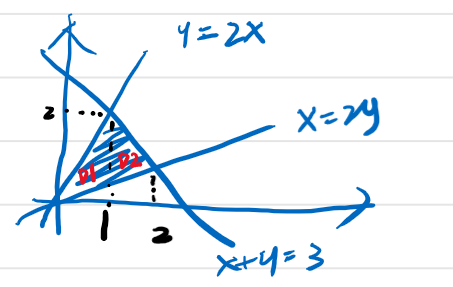 y=2x
2
x=2y
D1 D2
1 2
x+y=3